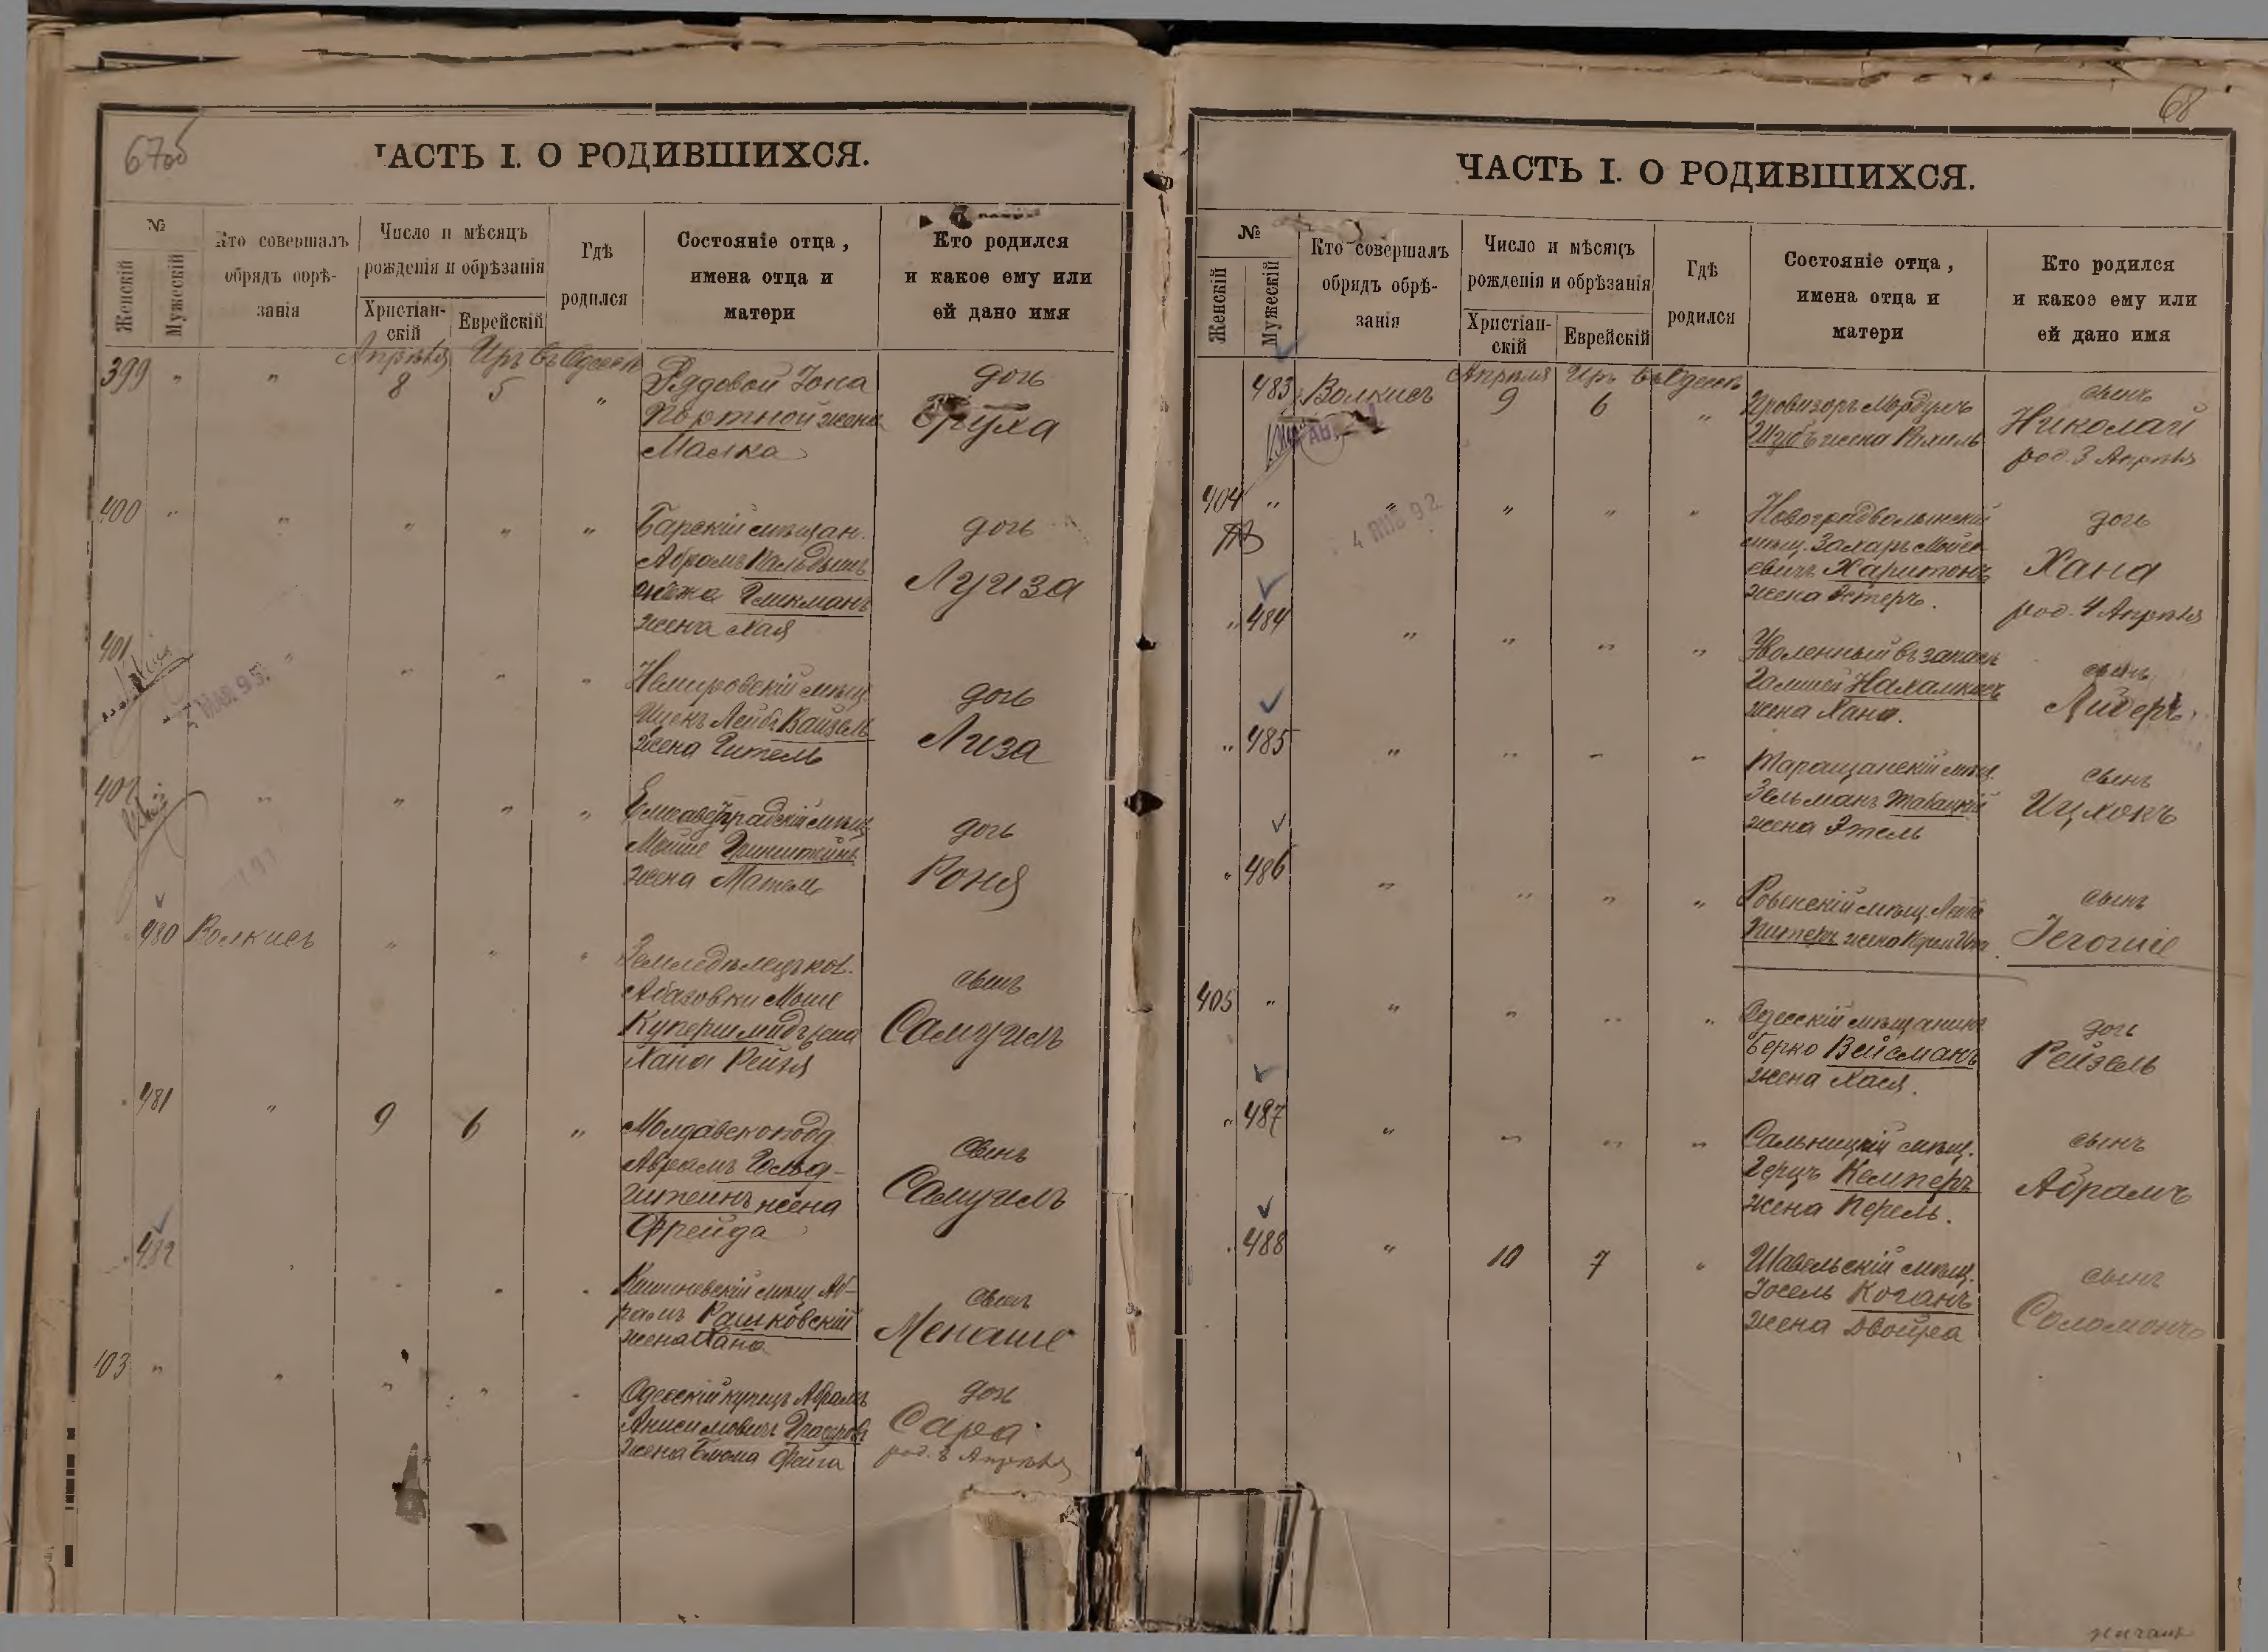 67об
ЧАСТЬ I. О РОДИВШИХСЯ.
№
Женскій
Мужескій
Кто совершалъ
обрядъ обрѣ-
занія
Число и мѣсяцъ
рожденія и обрѣзанія
Христіан-
скій
Еврейскій
Гдѣ
родился
Состояніе отца,
имена отца и
матери
Кто родился
и какое ему или
ей дано имя
399 " " Апрѣля 8 Иръ 5 въ Одессѣ "
Рядовой Іона
Портной жена
Малка
дочь
Бруха
400 " " " " "
Барскій мѣщан.
Абрамъ
Гликманъ
жена Хая
дочь
Луиза
401 " " " "
Немировскій мѣщ.
Ицекъ Лейбъ Вайзель
жена Гитель
дочь
Лиза
402 " " " "
Елисаветградскій мѣщ.
Мойше Гринштейнъ
жена
дочь
Роня
480 Волкисъ " " "
Земледѣлецъ кол.
Абазовки Моше
Купершмидъ жена
Хана Рейзя
сынъ
Самуилъ
481 " 9 6 "
Молдавскоподд.
Абрамъ Гольд-
штейнъ жена
Фрейда
сынъ
Самуилъ
482
Кишиневскій мѣщ. Аб-
рамъ Рашковскій
жена Хана
сынъ
Менаше
403 " " " "
Одесскій купецъ Абрамъ
Анисимовичъ
жена Блюма Фейга
дочь
Сара
род. 8 Апрѣля
68
ЧАСТЬ I. О РОДИВШИХСЯ.
№
Женскій
Мужескій
Кто совершалъ
обрядъ обрѣ-
занія
Число и мѣсяцъ
рожденія и обрѣзанія
Христіан-
скій
Еврейскій
Гдѣ
родился
Состояніе отца,
имена отца и
матери
Кто родился
и какое ему или
ей дано имя
483 Волкисъ Апрѣля 9 Иръ 6 въ Одессѣ "
Провизоръ Мордухъ
жена Рахиль
сынъ
Николай
род. 3 Апрѣля
404 " " " " "
Новоградволынскій
мѣщ. Захаръ Мойсе-
евичъ Харитонъ
жена Эстеръ.
дочь
Хана
род. 4 Апрѣля
" 484 " " " "
Уволенный въ запасъ
Нахамкисъ
жена Хана.
сынъ
Лидеръ
" 485 " " " "
Таращанскій мѣщ.
Зельманъ Табацкій
жена Этель
сынъ
Ицхокъ
" 486 " " " "
Ровенскій мѣщ. Лейб
жена
сынъ
405 " " " " "
Одесскій мѣщанинъ
Берко Вейсманъ
жена Хася.
дочь
Рейзель
" 487 " " " "
Сальницкій мѣщ.
Герцъ Кемперъ
жена Перель.
сынъ
Абрамъ
488 " 10 7 "
Шавельскій мѣщ.
Іосель Коганъ
жена Двойра
сынъ
Соломонъ